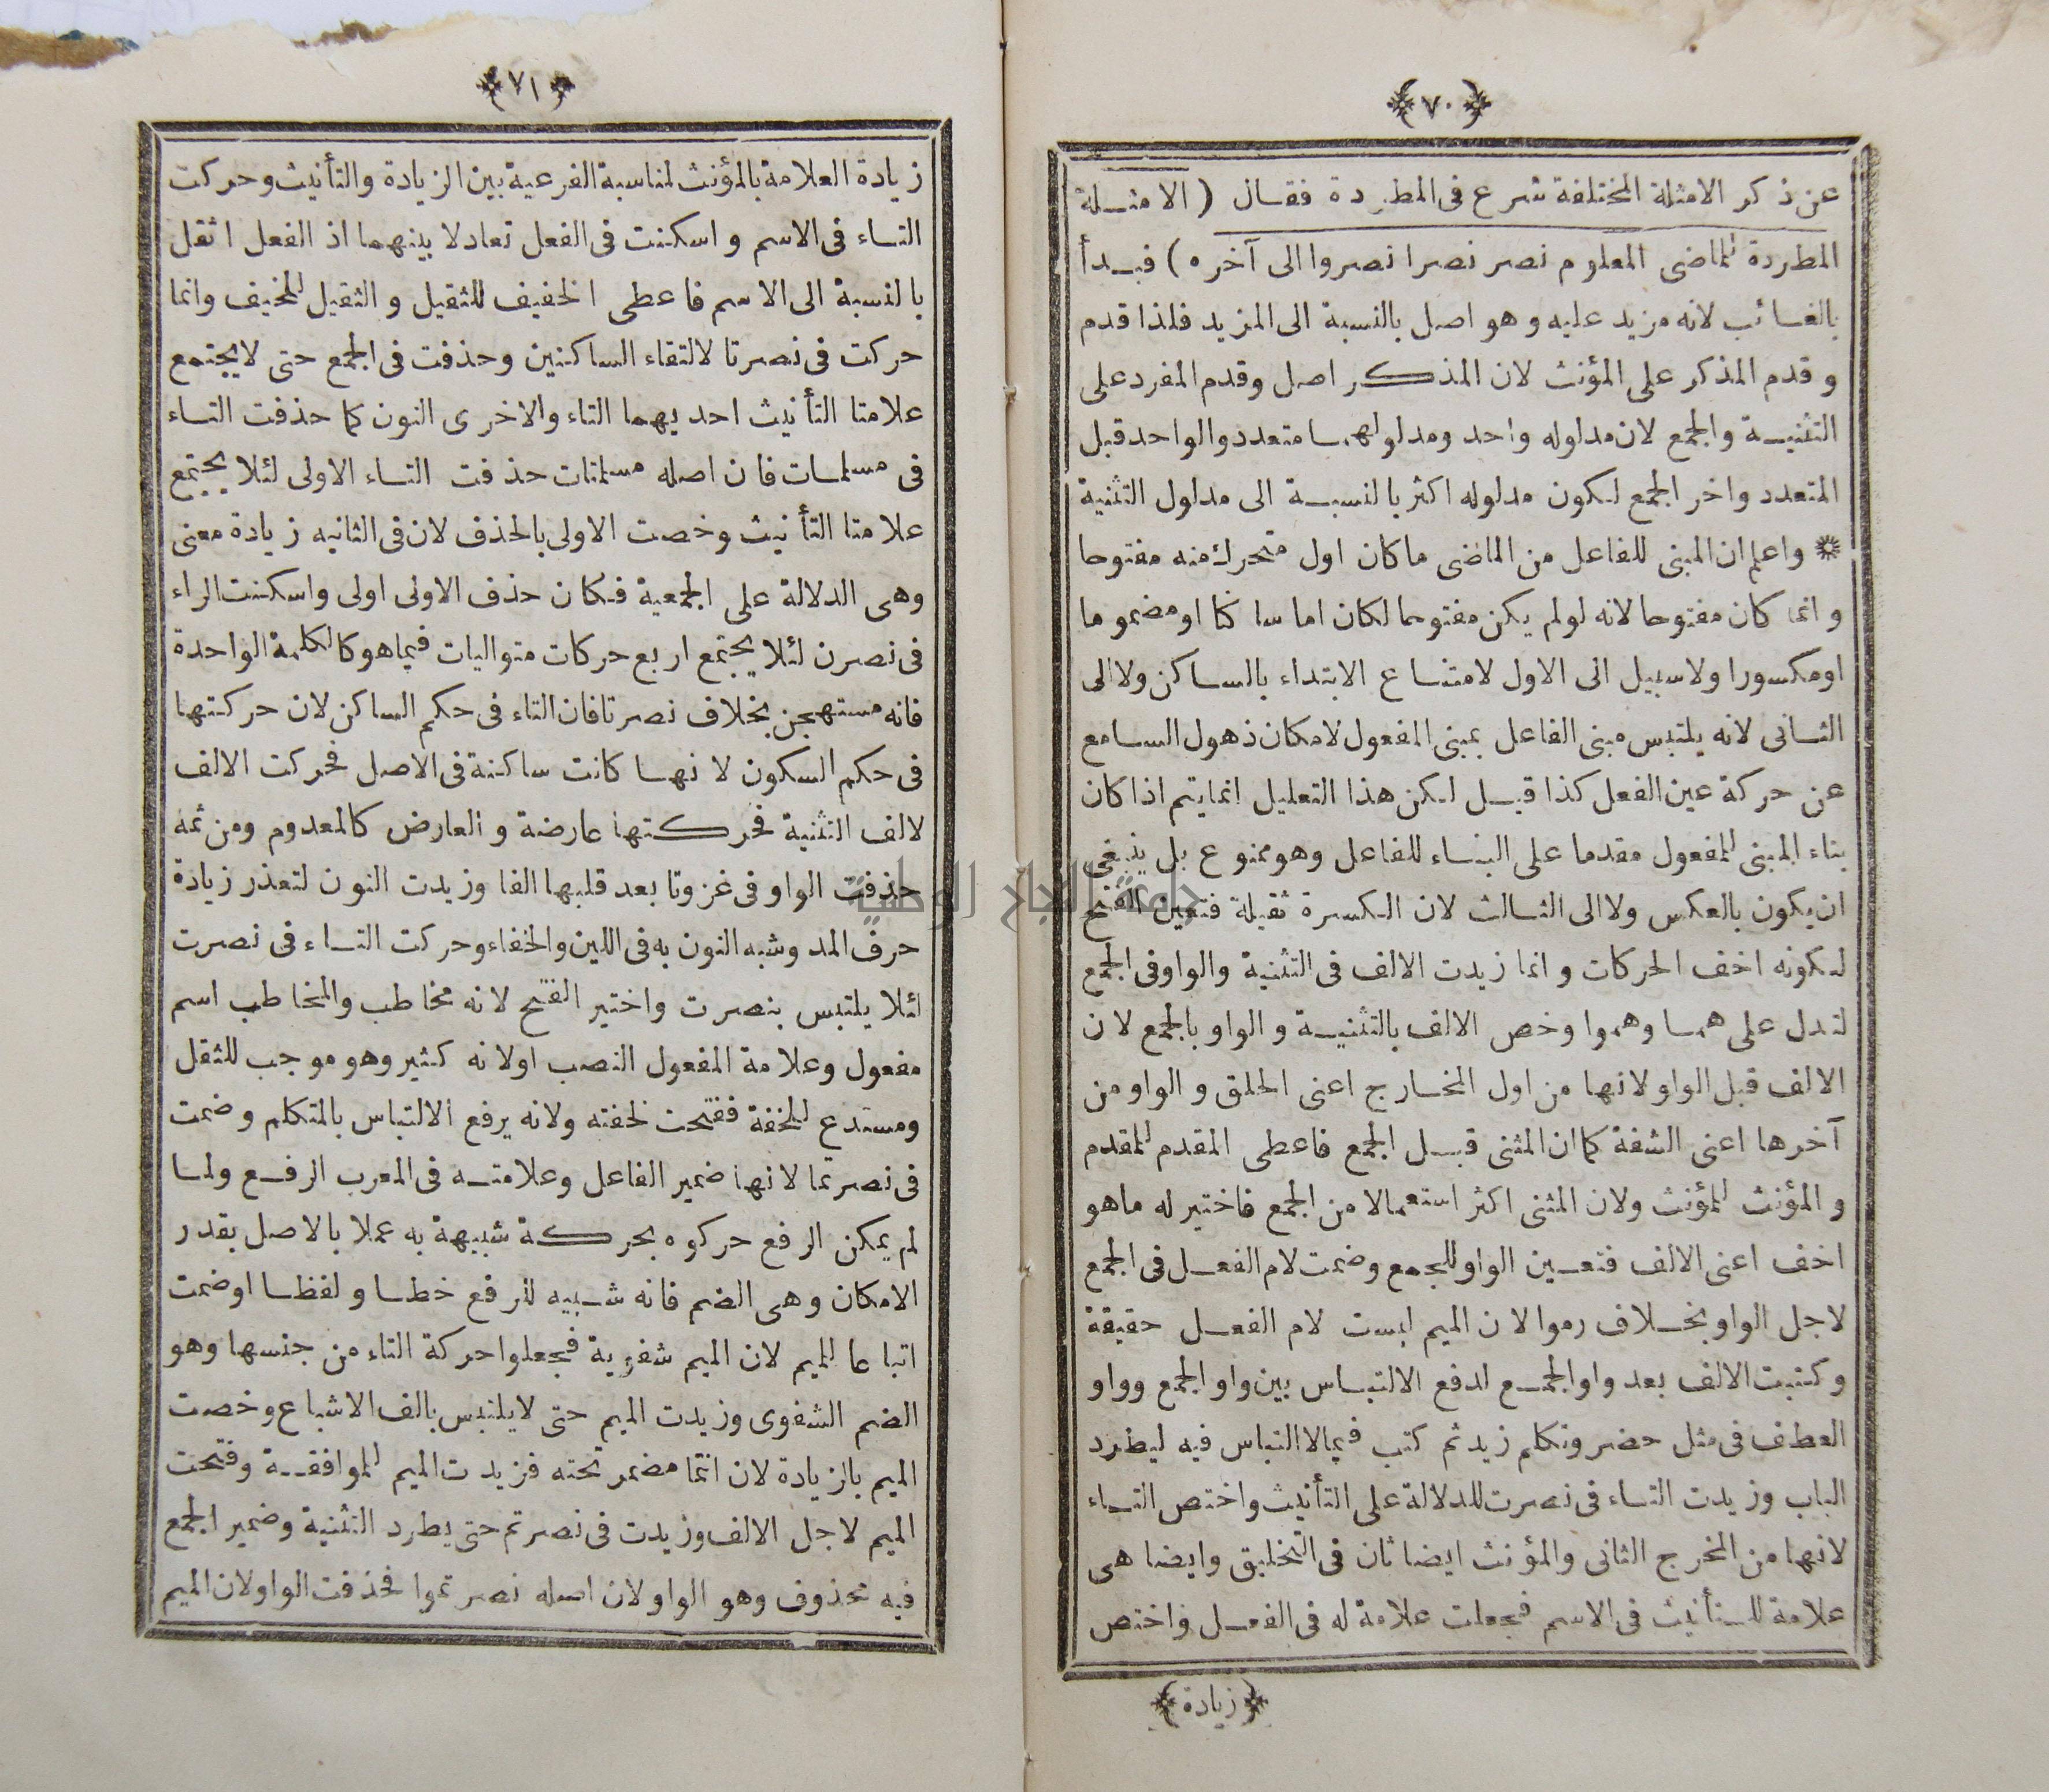 ﴿٧٠﴾
عن ذكر الامثلة المختلفة شرع فى المطردة فقال ( الامثلة
المطردة للماضى المعلوم نصر نصرا نصروا الى آخره ) فبدأ
بالغائب لانه مزيد عليه وهو اصل بالنسبة الى المزيد فلذا قدم
وقدم المذكر على المؤنث لان المذكر اصل وقدم المفرد على
التثنية والجمع لان مدلوله واحد ومدلولهما متعدد والواحد قبل
المتعدد واخر الجمع لكون مدلوله اكثر بالنسبة الى مدلول التثنية
* واعلم ان المبنى للفاعل من الماضى ما كان اول متحرك منه مفتوحا
وانما كان مفتوحا لانه لولم يكن مفتوحا لكان اما ساكنا او مضموما
او مكسورا ولا سبيل الى الاول لامتناع الابتداء بالساكن ولا الى
الثانى لانه يلتبس مبنى الفاعل بمبنى المفعول لامكان ذهول السامع
عن حركة عين الفعل كذا قيل لكن هذا التعليل انما يتم اذا كان
بناء المبنى للمفعول مقدما على البناء للفاعل وهو ممنوع بل ينبغى
ان يكون بالعكس ولا الى الثالث لان الكسرة ثقيلة فتعين الفتح
لكونه اخف الحركات وانما زيدت الالف فى التثنية والواو فى الجمع
لتدل على هما وهموا وخص الالف بالتثنية والواو بالجمع لان
الالف قبل الواو لانها من اول المخارج اعنى الحلق والواو من
آخرها اعنى الشفة كما ان المثنى قبل الجمع فاعطى المقدم للمقدم
والمؤنث للمؤنث ولان المثنى اكثر استعمالا من الجمع فاختير له ما هو
اخف اعنى الالف فتعين الواو للجمع وضمت لام الفعل فى الجمع
لاجل الواو بخلاف رموا لان الميم ليست لام الفعل حقيقة
وكتبت الالف بعد واو الجمع لدفع الالتباس بين واو الجمع وواو
العطف فى مثل حضر وتكلم زيد ثم كتب فيما لا التباس فيه ليطرد
الباب وزيدت التاء فى نصرت للدلالة على التأنيث واختص التاء
لانها من المخرج الثانى والمؤنث ايضا ثان فى التخليق وايضا هى
علامة للتأنيث فى الاسم فجعلت علامة له فى الفعل واختص
﴿زيادة﴾
﴿٧١﴾
زيادة العلامة بالمؤنث لمناسبة الفرعية بين الزيادة والتأنيث وحركت
التاء فى الاسم واسكنت فى الفعل تعادلا بينهما اذ الفعل اثقل
بالنسبة الى الاسم فاعطى الخفيف للثقيل والثقيل للخفيف وانما
حركت فى نصرتا لالتقاء الساكنين وحذفت فى الجمع حتى لا يجتمع
علامتا التأنيث احديهما التاء والاخرى النون كما حذفت التاء
فى مسلمات فان اصله مسلمتات حذفت التاء الاولى لئلا يجتمع
علامتا التأنيث وخصت الاولى بالحذف لان فى الثانيه زيادة معنى
وهى الدلالة على الجمعية فكان حذف الاولى اولى واسكنت الراء
فى نصرن لئلا يجتمع اربع حركات متواليات فيما هو كالكلمة الواحدة
فانه مستهجن بخلاف نصرتا فان التاء فى حكم الساكن لان حركتها
فى حكم السكون لانها كانت ساكنة فى الاصل فحركت الالف
لالف التثنية فحركتها عارضة والعارض كالمعدوم ومن ثمه
حذفت الواو فى غزوتا بعد قلبها الفا وزيدت النون لتعذر زيادة
حرف المد وشبه النون به فى اللين والخفاء وحركت التاء فى نصرت
لئلا يلتبس بنصرت واختير الفتح لانه مخاطب والمخاطب اسم
مفعول وعلامة المفعول النصب اولانه كثير وهو موجب للثقل
ومستدع للخفة ففتحت لخفته ولانه يرفع الالتباس بالمتكلم وضمت
فى نصرتما لانها ضمير الفاعل وعلامته فى المعرب الرفع ولما
لم يمكن الرفع حركوه بحركة شبيهة به عملا بالاصل بقدر
الامكان وهى الضم فانه شبيه للرفع خطا ولفظا او ضمت
اتباعا للميم لان الميم شفوية فجعلوا حركة التاء من جنسها وهو
الضم الشفوى وزيدت الميم حتى لا يلتبس بالف الاشباع وخصت
الميم بالزيادة لان انتما مضمر تحته فزيدت الميم للموافقة وفتحت
الميم لاجل الالف وزيدت فى نصرتم حتى يطرد التثنية وضمير الجمع
فيه محذوف وهو الواو لان اصله نصرتموا فحذفت الواو لان الميم
جامعة النجاح الوطنية